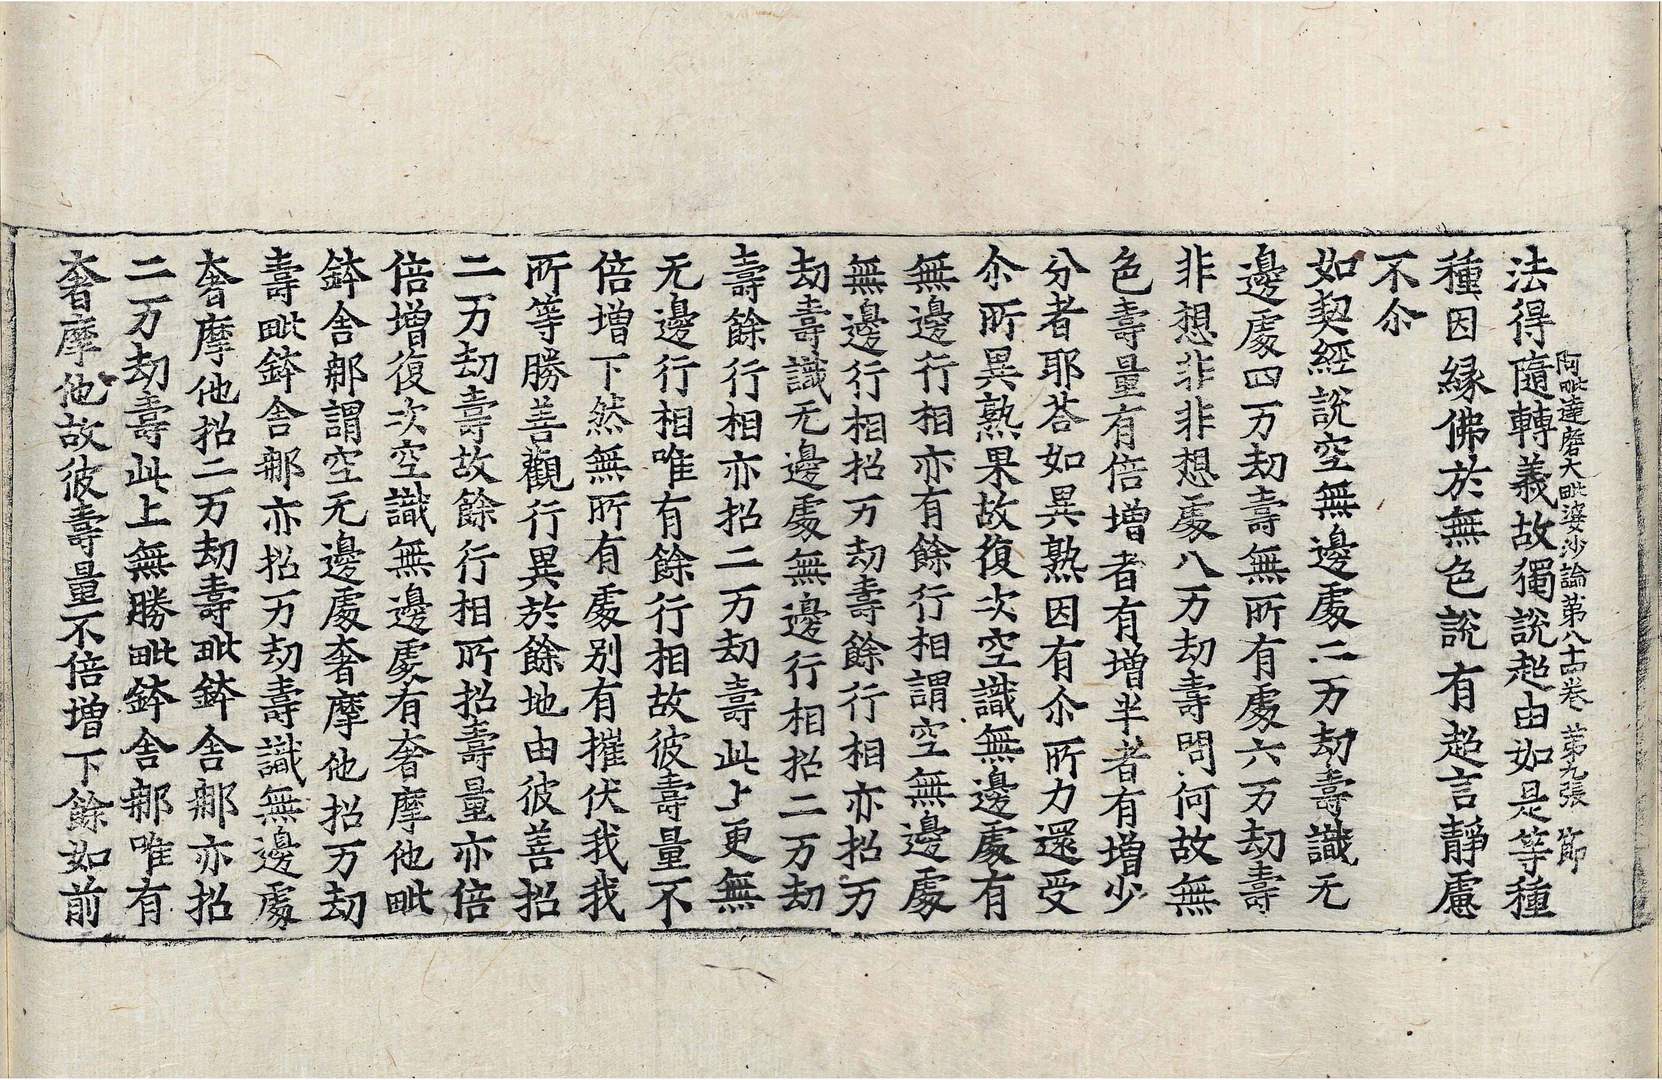 阿毗達磨大毗婆沙論第八十四卷 第九張 節
法得隨轉義故獨說超由如是等種
種因緣佛於無色說有超言靜慮
不尒
如契經說空無邊處二万劫壽識无
邊處四万劫壽無所有處六万劫壽
非想非非想處八万劫壽問何故無
色壽量有倍增者有增半者有增少
分者耶荅如異熟因有尒所力還受
尒所異熟果故復次空識無邊處有
無邊行相亦有餘行相謂空無邊處
無邊行相招万劫壽餘行相亦招万
劫壽識无邊處無邊行相招二万劫
壽餘行相亦招二万劫壽此上更無
无邊行相唯有餘行相故彼壽量不
倍增下然無所有處別有摧伏我我
所等勝善觀行異於餘地由彼善招
二万劫壽故餘行相所招壽量亦倍
倍增復次空識無邊處有奢摩他毗
鉢舍那謂空无邊處奢摩他招万劫
壽毗鉢舍那亦招万劫壽識無邊處
奢摩他招二万劫壽毗鉢舍那亦招
二万劫壽此上無勝毗鉢舍那唯有
奢摩他故彼壽量不倍增下餘如前